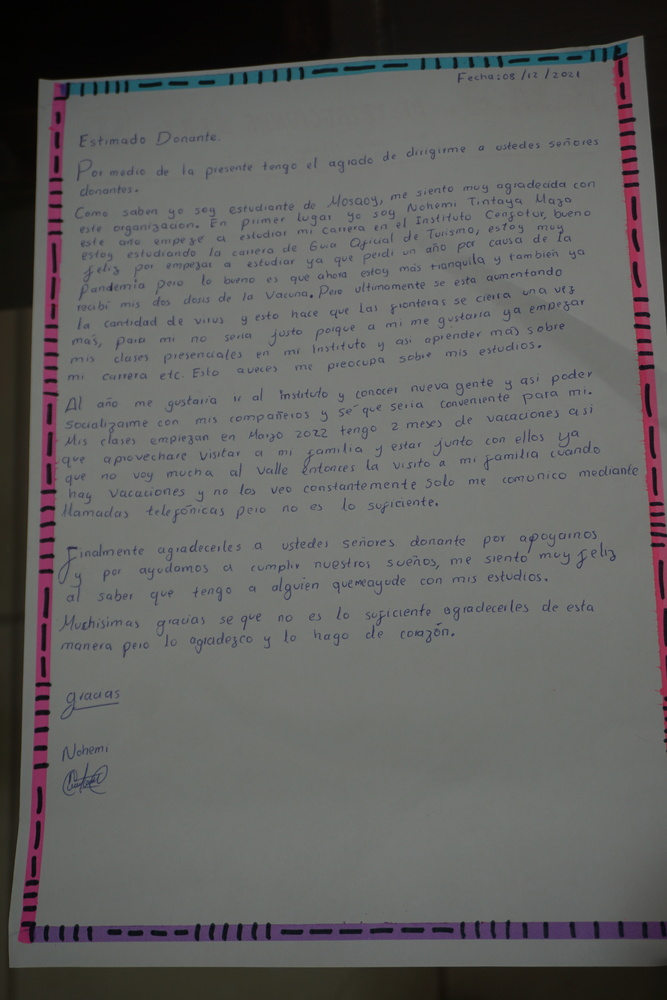 Fecha: 08/12/2021
Estimado Donante.
Por medio de la presente tengo el agrado de dirigirme a ustedes señores
donantes.
Como saben yo soy estudiante de Mosqoy, me siento muy agradecida con
este organización. En primer lugar yo soy Nohemi Tintaya Mazo
este año empeze a estudiar mi carrera en el Instituto Cenfotur, bueno
estoy estudiando la carrera de Guia Oficial de Turismo, estoy muy
feliz por empezar a estudiar ya que perdi un año por causa de la
pandemia pero lo bueno es que ahora estoy más tranquila y tambien ya
recibi mis dos dosis de la Vacuna. Pero ultimamente se esta aumentando
la cantidad de virus y esto hace que las fronteras se cierra una vez
más, para mi no seria justo porque a mi me gustaria ya empezar
mis clases presenciales en mi Instituto y asi aprender más sobre
mi carrera etc. Esto aveces me preocupa sobre mis estudios.
Al año me gustaria ir al Instituto y conocer nueva gente y asi poder
socializarme con mis compañeros y sé que seria conveniente para mi.
Mis clases empiezan en Marzo 2022 tengo 2 meses de vacaciones asi
que aprovechare visitar a mi familia y estar junto con ellos ya
que no voy mucha al Valle entonces la visito a mi familia cuando
hay vacaciones y no los veo constantemente solo me comunico mediante
llamadas telefónicas pero no es lo suficiente.
Finalmente agradecerles a ustedes señores donante por apoyarnos
y por ayudarnos a cumplir nuestros sueños, me siento muy feliz
al saber que tengo a alguien quemeayude con mis estudios.
Muchisimas gracias se que no es lo suficiente agradecerles de esta
manera pero lo agradesco y lo hago de corazón.
gracias
Nohemi